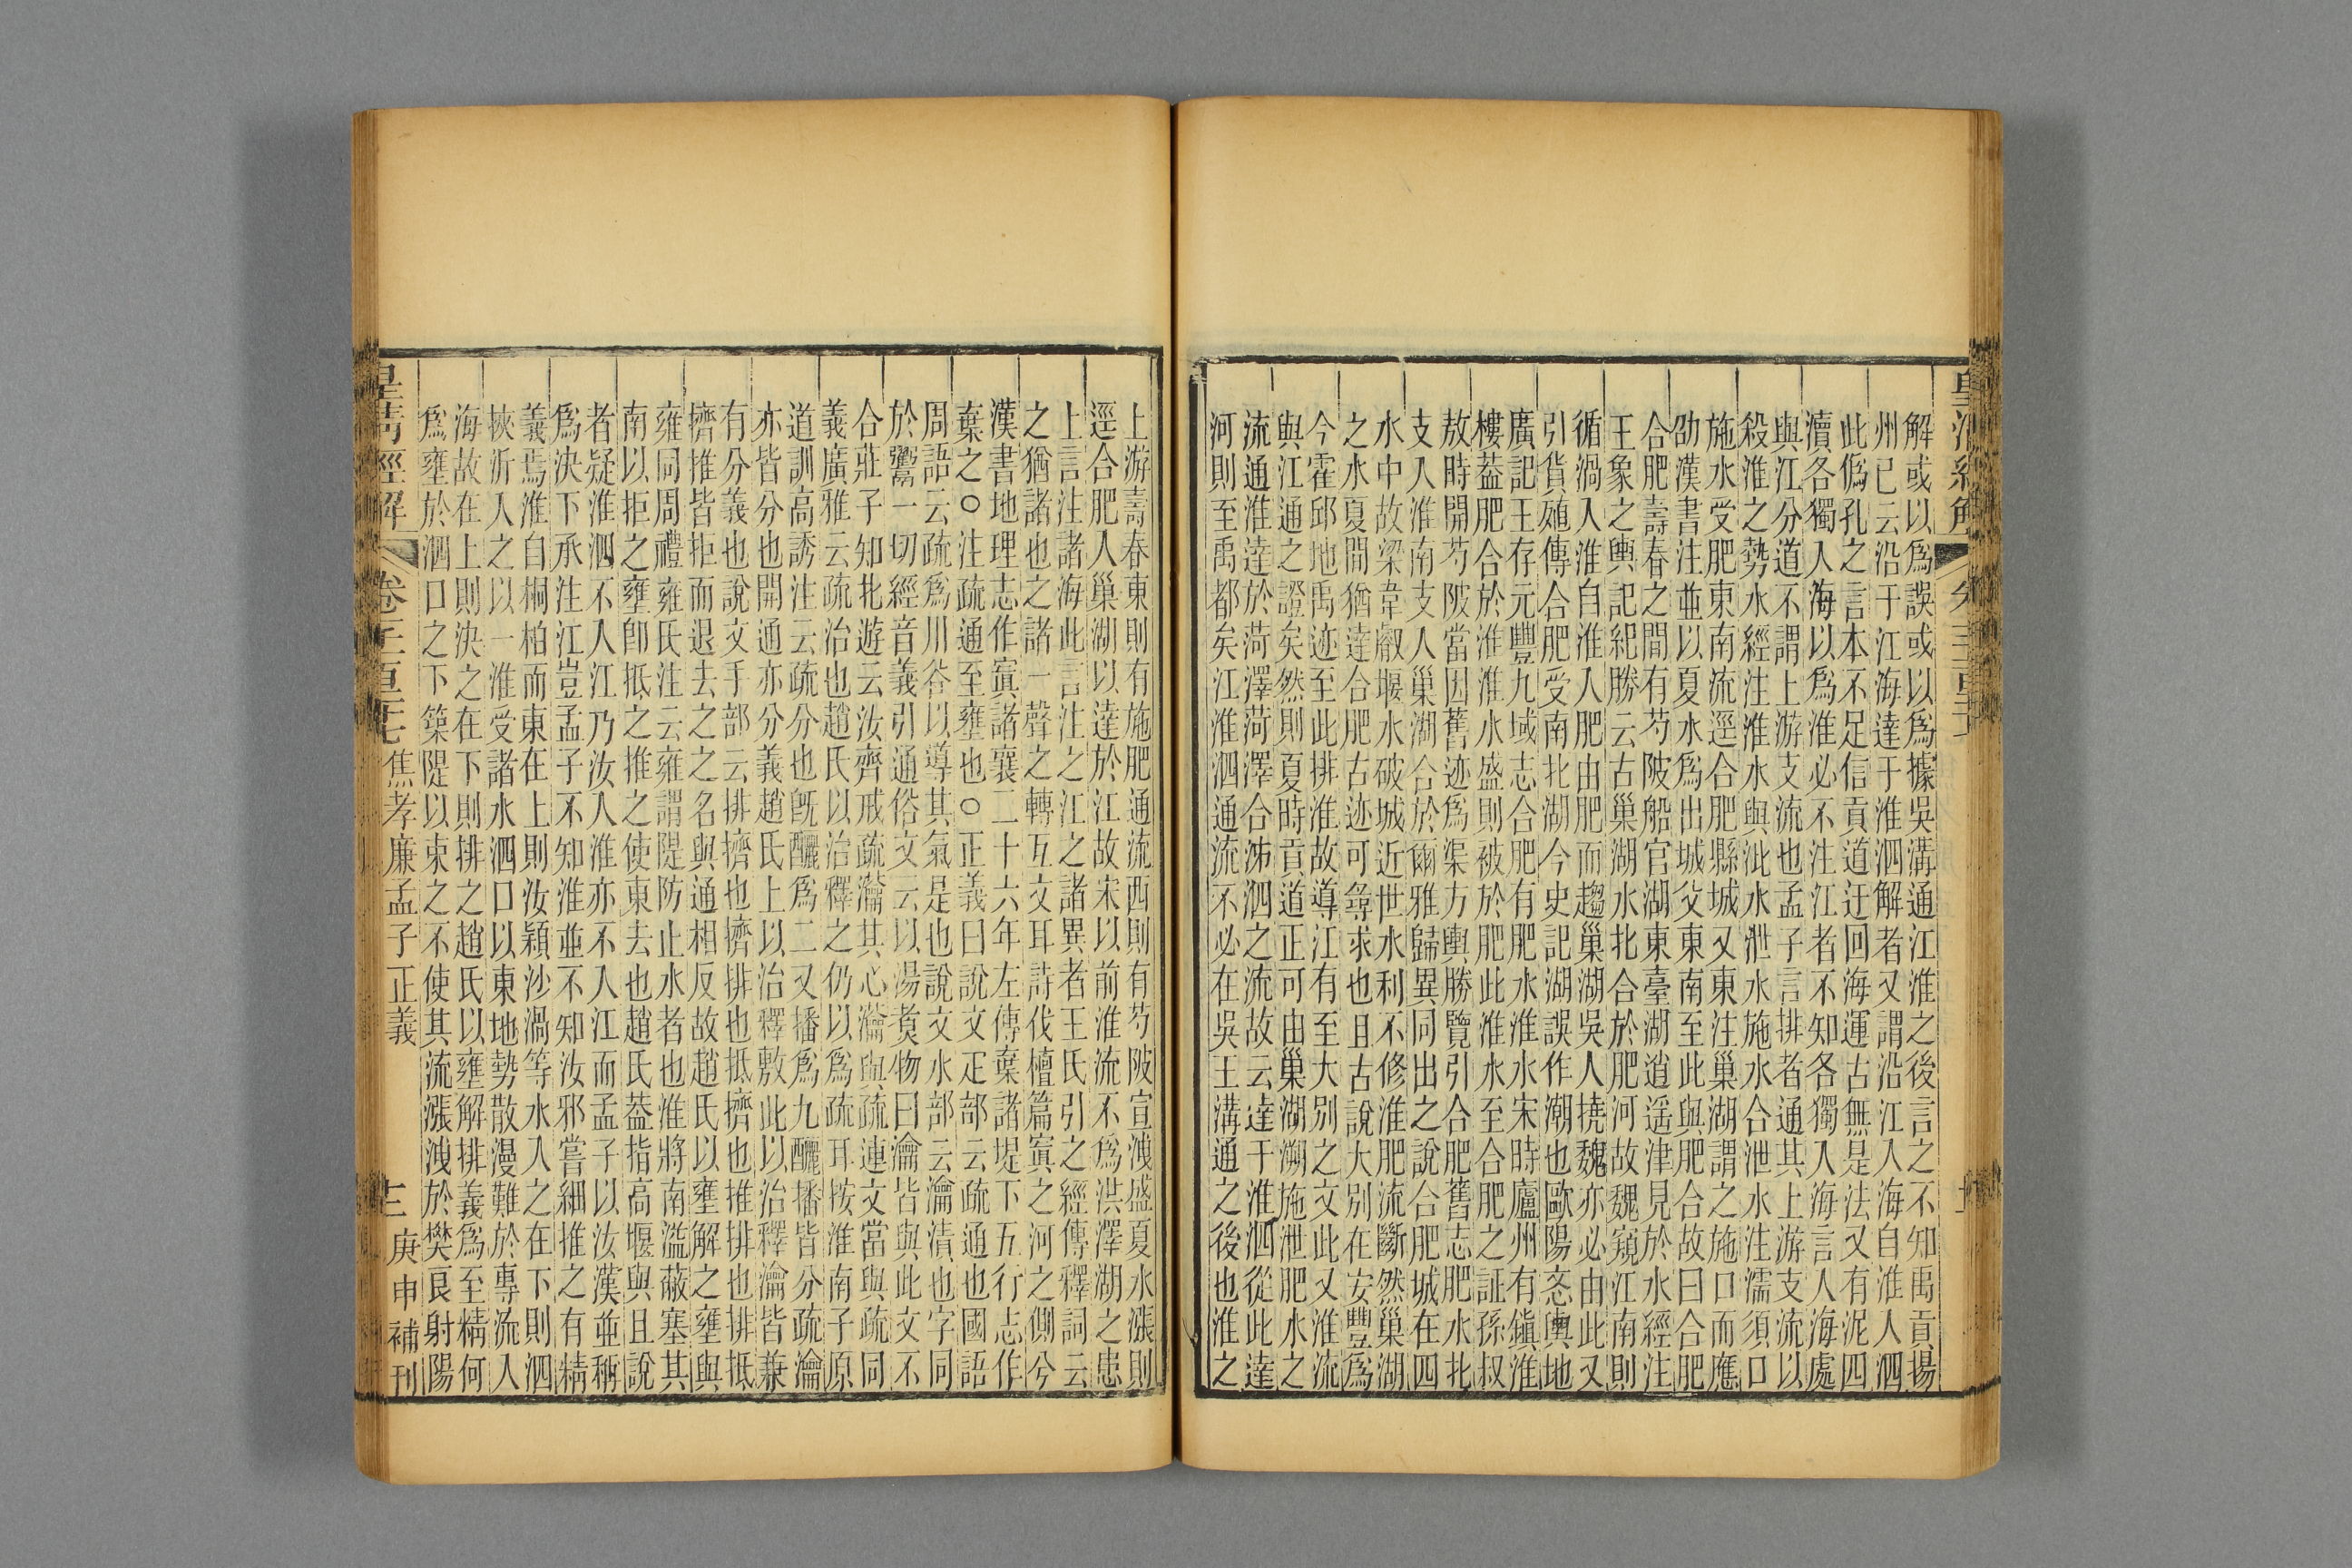 解或以爲誤或以爲據吳溝通江淮之後言之不知禹貢揚
州已云沿于江海達于淮泗解者又謂沿江入海自淮入泗
此僞孔之言本不足信貢道迂回海運古無是法又有泥四
瀆各獨入海以爲淮必不注江者不知各獨入海言入海處
與江分道不謂上游支流也孟子言排者通其上游支流以
殺淮之勢水經注淮水與沘水泄水施水合泄水注濡須口
施水受肥東南流逕合肥縣城又東注巢湖謂之施口而應
劭漢書注並以夏水爲出城父東南至此與肥合故曰合肥
合肥壽春之間有芍陂船官湖東臺湖逍遙津見於水經注
王象之輿記紀勝云古巢湖水北合於肥河故魏窺江南則
循渦入淮自淮入肥由肥而趨巢湖吳人撓魏亦必由此又
引貨殖傳合肥受南北湖今史記湖誤作潮也歐陽忞輿地
廣記王存元豐九域志合肥有肥水淮水宋時廬州有鎭淮
樓葢肥合於淮淮水盛則被於肥此淮水至合肥之証孫叔
敖時開芍陂當因舊迹爲渠方輿勝覽引合肥舊志肥水北
支入淮南支入巢湖合於爾雅歸異同出之說合肥城在四
水中故梁韋叡堰水破城近世水利不修淮肥流斷然巢湖
之水夏間猶達合肥古迹可尋求也且古說大別在安豐爲
今霍邱地禹迹至此排淮故導江有至大別之文此又淮流
與江通之證矣然則夏時貢道正可由巢湖溯施泄肥水之
流通淮達於菏澤菏澤合泲泗之流故云達于淮泗從此達
河則至禹都矣江淮泗通流不必在吳王溝通之後也淮之
上游壽春東則有施肥通流西則有芍陂宣洩盛夏水漲則
逕合肥入巢湖以達於江故宋以前淮流不爲洪澤湖之患
上言注諸海此言注之江之諸異者王氏引之經傳釋詞云
之猶諸也之諸一聲之轉互文耳詩伐檀篇寘之河之側兮
漢書地理志作寘諸襄二十六年左傳棄諸堤下五行志作
棄之○注疏通至壅也○正義曰說文疋部云疏通也國語
周語云疏爲川谷以導其氣是也說文水部云瀹漬也字同
於鬻一切經音義引通俗文云以湯煑物曰瀹皆與此文不
合莊子知北遊云汝齊戒疏瀹其心瀹與疏連文當與疏同
義廣雅云疏治也趙氏以治釋之仍以爲疏耳按淮南子原
道訓高誘注云疏分也旣釃爲二又播爲九釃播皆分疏瀹
亦皆分也開通亦分義趙氏上以治釋敷此以治釋瀹皆兼
有分義也說文手部云排擠也擠排也抵擠也推排也排抵
擠推皆拒而退去之之名與通相反故趙氏以壅解之壅與
雍同周禮雍氏注云雍謂隄防止水者也淮將南溢蔽塞其
南以拒之壅卽抵之推之使東去也趙氏葢指高堰與且說
者疑淮泗不入江乃汝入淮亦不入江而孟子以汝漢並稱
爲決下承注江豈孟子不知淮並不知汝邪嘗細推之有精
義焉淮自桐柏而東在上則汝潁沙渦等水入之在下則泗
挾沂入之以一淮受諸水泗口以東地勢散漫難於專流入
海故在上則決之在下則排之趙氏以壅解排義爲至精何
爲壅於泗口之下築隄以束之不使其流漲洩於樊良射陽
皇清經解
卷三百二十七
焦孝廉孟子正義
三
庚申補刊